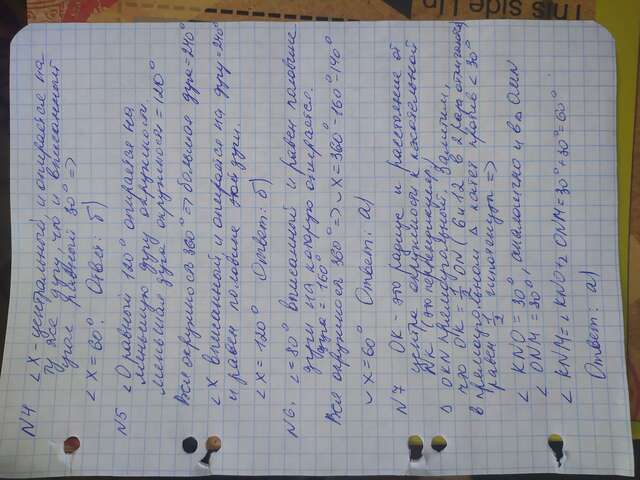 This side Up
N4 ∠X - центральный и опирается на
ту же дугу, что и вписанный
угол равный 30° =>
∠X = 60°. Ответ: б)
N5 ∠O равный 120° опирается на
меньшую дугу окружности
меньшая дуга окружности = 120°
Вся окружность 360° => большая дуга = 240°
∠X вписанный и опирается на дугу = 240°
и равен половине этой дуги.
∠X = 120° Ответ: б)
N6. ∠ = 80° вписанный и равен половине
дуги на которую опирается.
Дуга = 160°
Вся окружность 360° => ◡X = 360° - 160° - 140°
◡X = 60° Ответ: а)
N7 OK - это радиус и расстояние от
центра окружности к касательной
NK (это перпендикуляр)
Δ OKN прямоугольный. Заметим,
что OK = 1/2 ON (6 и 12 в 2 раза отличаются)
в прямоугольном Δ катет против ∠ 30°
равен 1/2 гипотенузы =>
∠ KNO = 30°, аналогично и в Δ OMN
∠ ONM = 30°,
∠ KNM = ∠ KNO + ∠ ONM = 30° + 30° = 60°
Ответ: а)